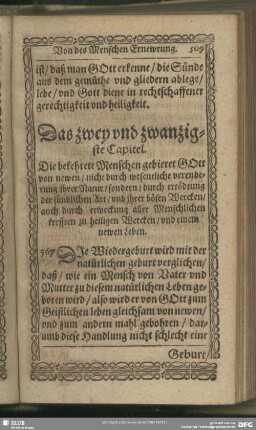 Von des Menschen Ernewrung. 509
ist/ daß man GOtt erkenne/ die Sünde
aus dem gemüthe vnd gliedern ablege/
lebe/ vnd Gott diene in rechtschaffener
gerechtigkeit vnd heiligkeit.
Das zwey vnd zwanzig-
ste Capitel.
Die bekehrete Menschen gebieret GOtt
von newen/ nicht durch wesentliche verende-
rung jhrer Natur/ sondern/ durch ertödtung
der sündlichen Art/ vnd jhrer bösen Wercken/
auch durch erweckung aller Menschlichen
krefften zu heiligen Wercken/ vnd einem
newen Leben.
567 DIe Wiedergeburt wird mit der
natürlichen geburt verglichen/
daß/ wie ein Mensch von Vater vnd
Mutter zu diesem natürlichen Leben ge-
boren wird/ also wird er von GOtt zum
Geistlichen leben gleichsam von newen/
vnd zum andern mahl gebohren/ dar-
umb diese Handlung nicht schlecht eine
Geburt
SLUB
DFG